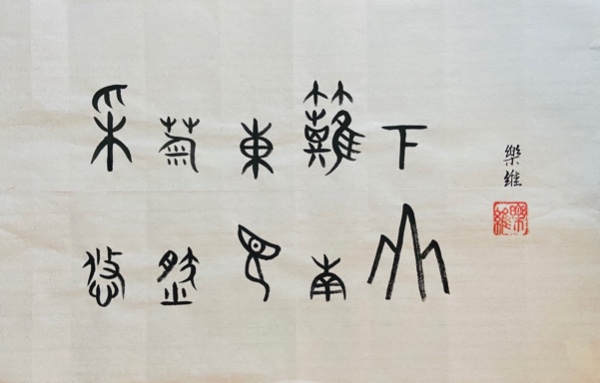 采菊東籬下
悠然見南山
樂維
樂維